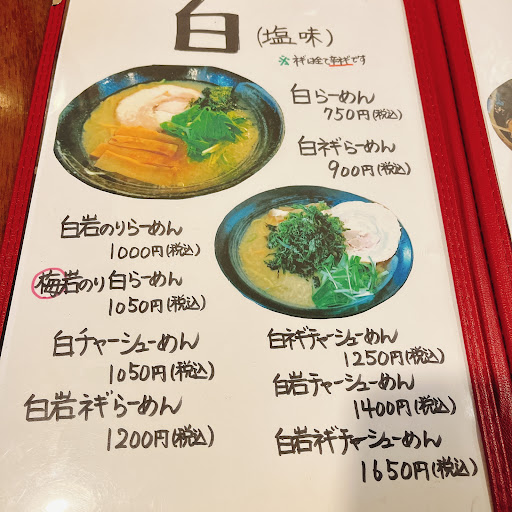 白(塩味)
※ネギは全て青ネギです
白らーめん
750円(税込)
白ネギらーめん
900円(税込)
白岩のりらーめん
1000円(税込)
梅岩のり白らーめん
1050円(税込)
白チャーシューめん
1050円(税込)
白岩ネギらーめん
1200円(税込)
白ネギチャーシューめん
1250円(税込)
白岩チャーシューめん
1400円(税込)
白岩ネギチャーシューめん
1650円(税込)